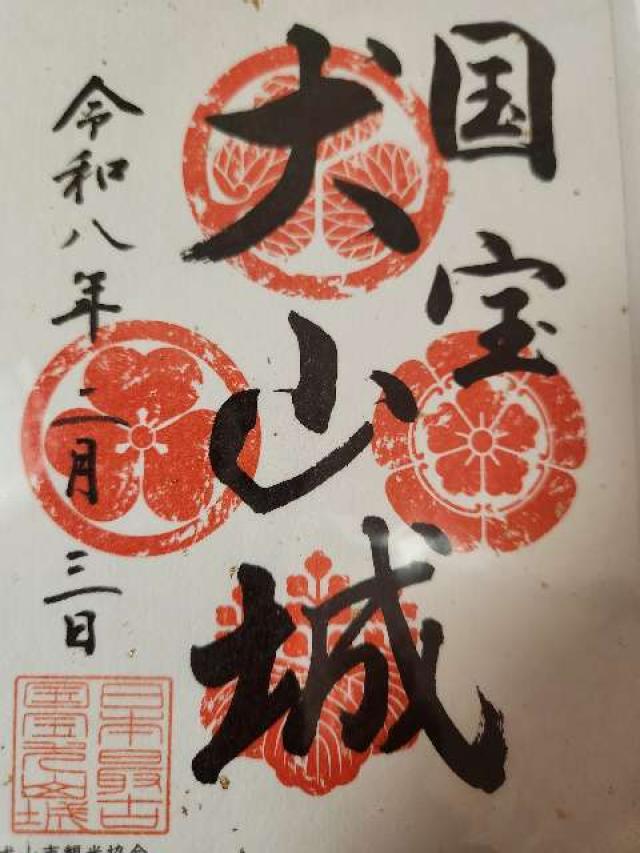 国宝
犬山城
令和八年二月三日
日本最古
国宝犬山城
犬山市観光協会